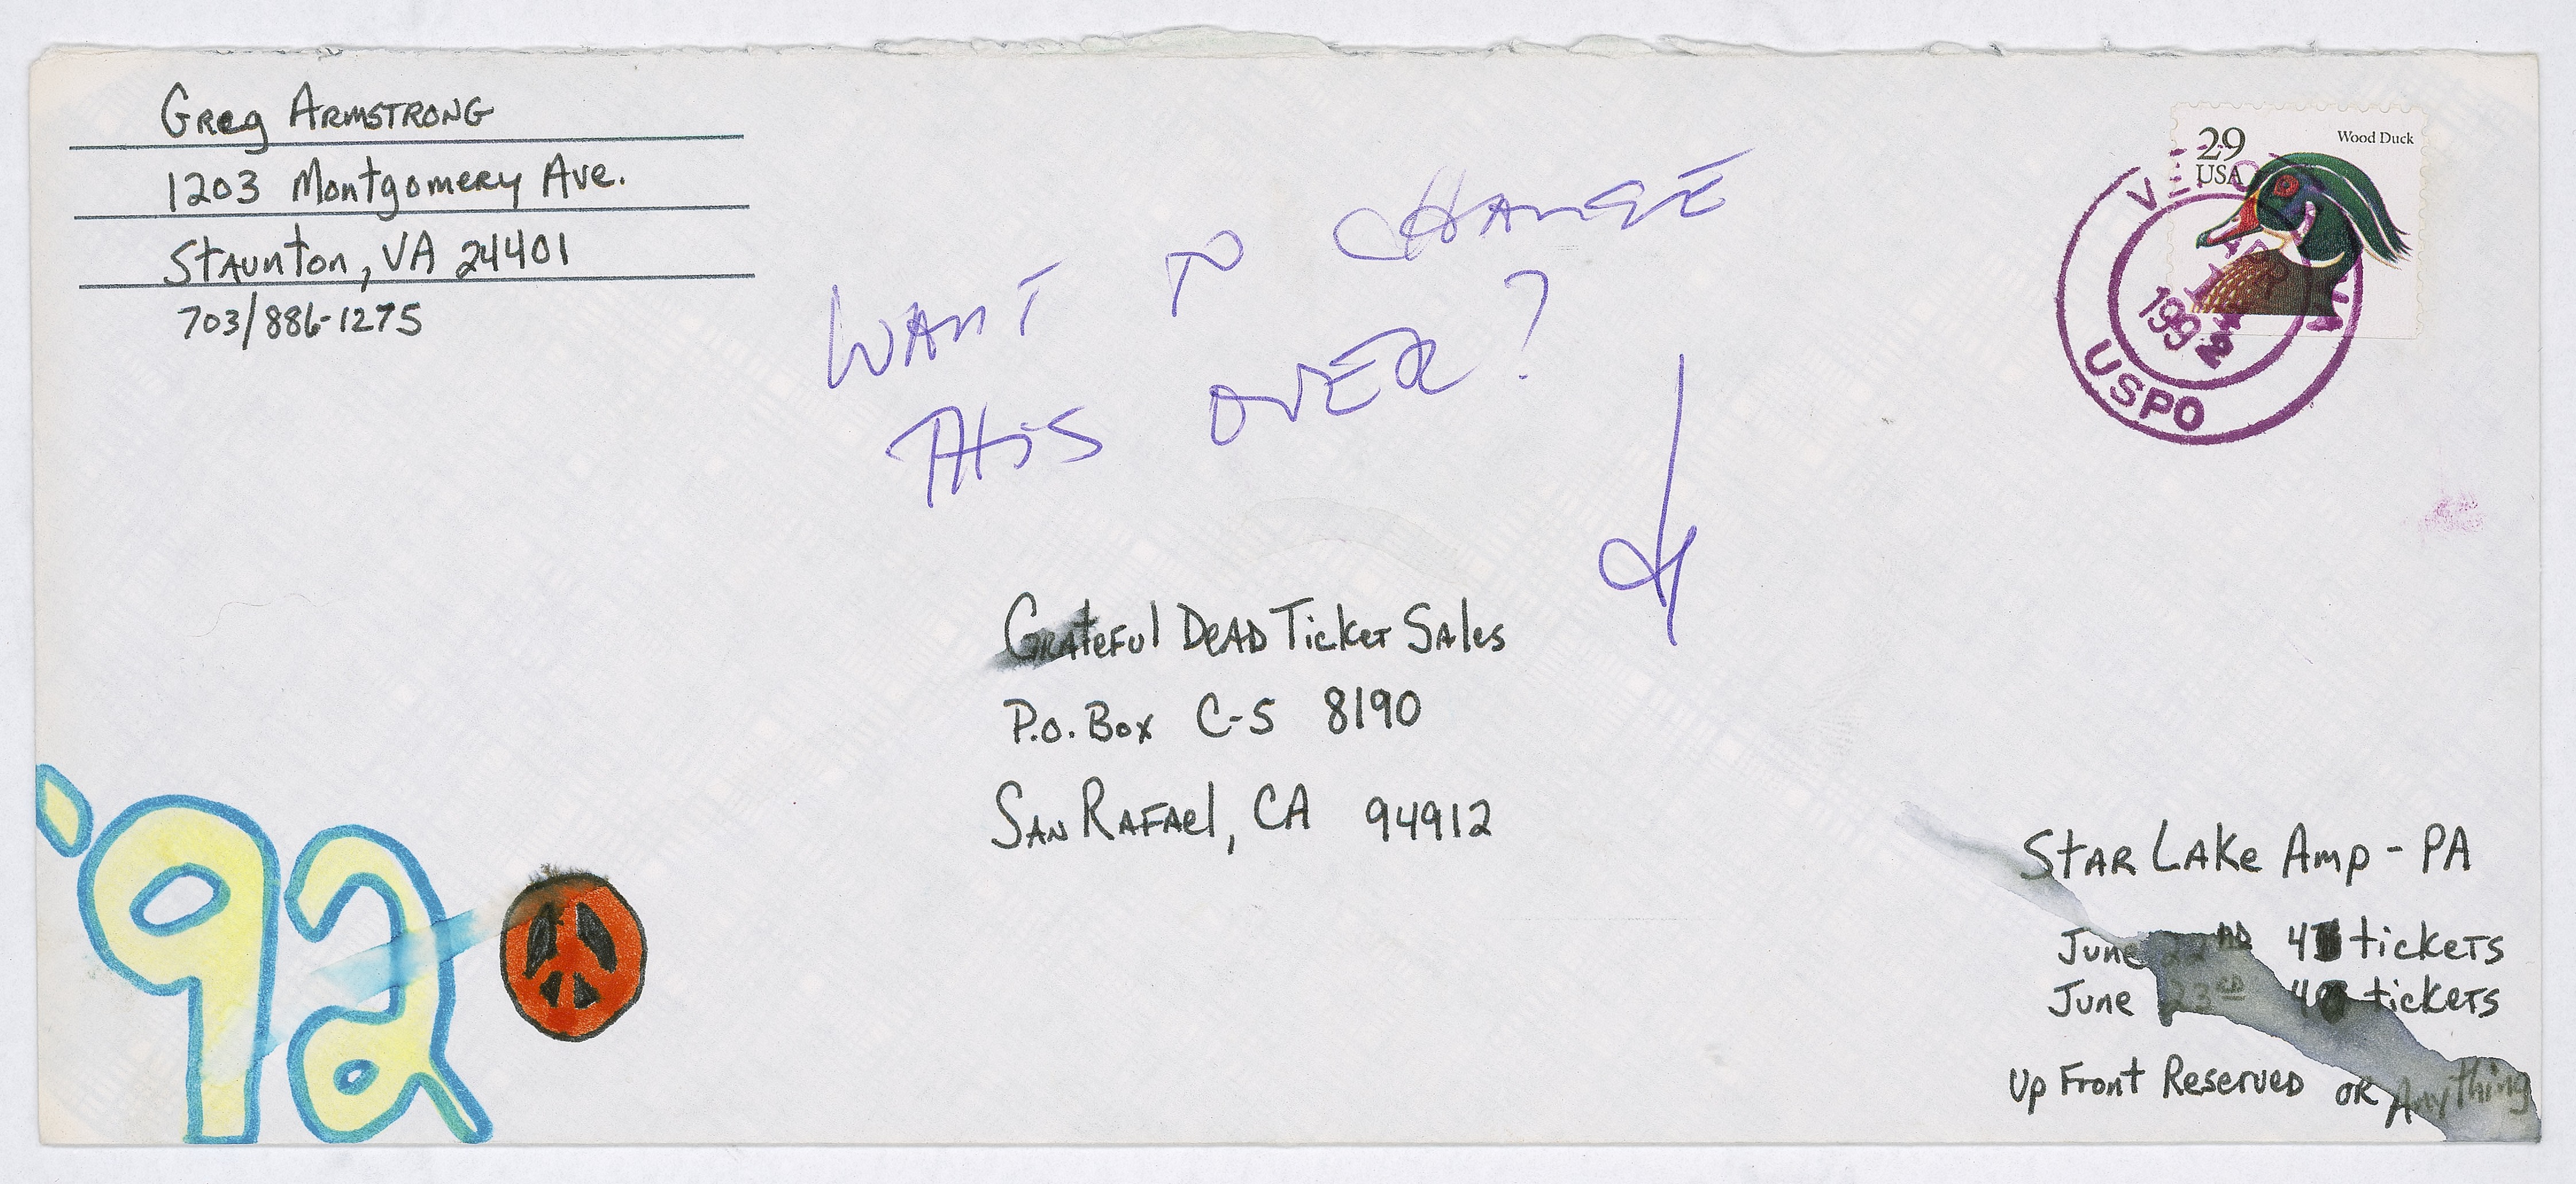 Greg Armstrong
1203 Montgomery Ave.
Staunton, VA 24401
703/886-1275
WANT TO CHANGE
THIS OVER?
29
USA
Wood Duck
1992
USPO
Grateful Dead Ticket Sales
P.O. Box C-S 8190
San Rafael, CA 94912
'92
Star Lake Amp - PA
June 22ND 4 tickets
June 23RD 4 tickets
Up Front Reserved or Anything